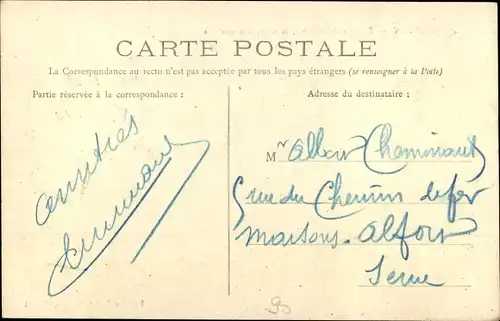 CARTE POSTALE
La Correspondance au recto n'est pas acceptée par tous les pays étrangers (se renseigner à la Poste)
Partie réservée à la correspondance :
Amitiés
Adresse du destinataire :
Mr Albert Chaminaut
5 rue du Chemin de fer
Maisons-Alfort
Seine